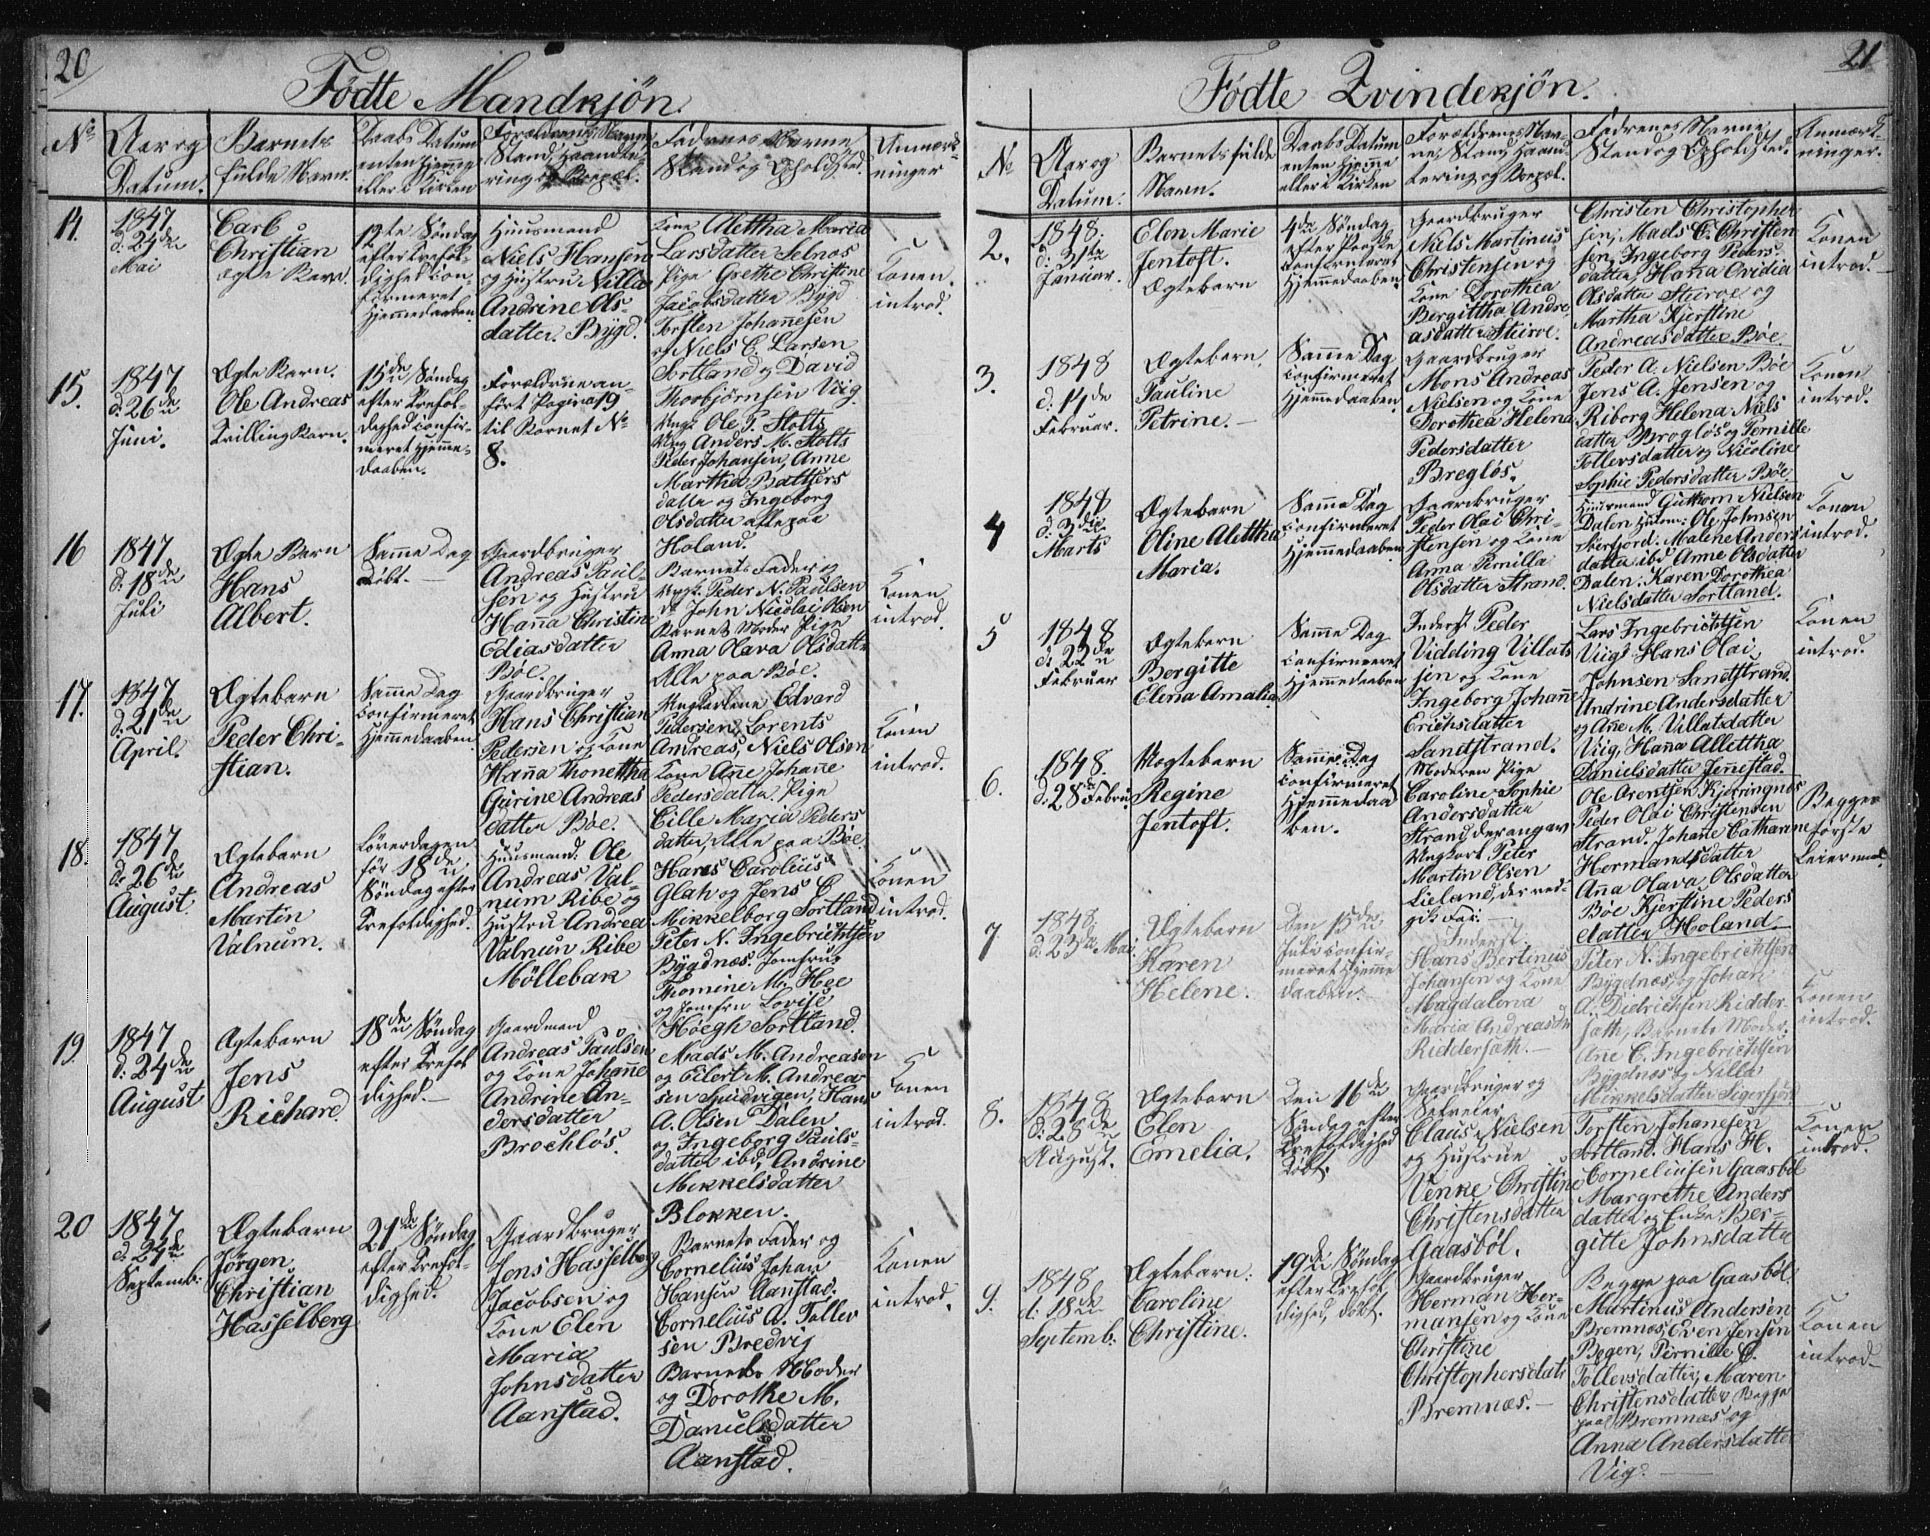 20
Födte Mandkjön.
No
Aar og
Datum.
Barnets
fulde Navn.
Daabs Datum
enten Hjemme
eller i Kirken
Forældrenes Navne
Stand, Haandte-
ring og Boepæl.
Fadrenes Navne
Stand og Opholdsted.
Anmærk-
ninger
14.
1847
d: 24de
Mai
Carl
Christian
ægte Barn.
12te Söndag
efter Trefol-
dighed con-
firmeret
Hjemmedaaben.
Huusmand
Niels Hansen
og Hustru Nilla
Andrine Ols-
datter. Bÿgd.
Kone Alettha Maria
Larsdatter Selnæs
Pige Grethe Christine
Jacobsdatter Bÿgd
Torsten Johannesen
og Niels C. Larsen
Sortland og David
Thorbjörnsen Vиig.
Konen
introd.
15.
1847
d: 26de
Juni.
Ægte Barn.
Ole Andreas
Trilling Barn.
15de Söndag
efter Trefol-
dighed confir-
meret Hjemme-
daaben.
Forældrene an-
fört Pagina 19
til Barnet No
8.
Ungk. Ole P. Holts
Ung Anders M. Holts
Peder Johansen, Anne
Martha Balthers
datter og Ingeborg
Olsdatter alle paa
Holand.
16
1847
d: 18de
Juli
Ægte Barn
Hans
Albert.
Samme Dag
döbt.
Gaardbruger
Andreas Paul-
sen og Hustru
Hanna Christine
Ediasdatter
Böe.
Barnets Fader og
Ungk. Peder N. Paulsen
do John Nicolai Olsen
Barnets Moder Pige
Anna Olava Olsdatter
Alle paa Böe.
Konen
introd.
17.
1847
d: 21de
April.
Ægtebarn
Peder Chri-
stian.
Samme Dag
confirmeret
Hjemmedaaben.
Gaardbruger
Hans Christian
Pedersen og Kone
Hanna Thonettha
Gurine Andreas
datter Böe.
Ungkarlene Edvard
Pedersen, Lorents
Andreas, Niels Olsen
Kone Ane Johanne
Pedersdatter. Pige
Cille Maria Peders
datter Alle paa Böe.
Konen
introd.
18.
1847
d: 26de
August.
Ægtebarn
Andreas
Martin
Valnum.
Löverdagen
för 18de
Söndag efter
Trefoldighed.
Huusmand: Ole
Andreas Val-
num Ribe og
Hustru Andrea
Valnun Ribe
Möllebak
Hans Carolius
Glah og Jens C.
Mikkelborg Sortland
Peter N. Ingebrichtsen
Bÿgdnæs. Jomfru
Thomine M. Hee
og Jomfru Lovise
Höegh Sortland.
Konen
introd.
19.
1847
d: 24de
August
Ægtebarn
Jens
Richard
18de Söndag
efter Trefol
dighed.
Gaardmand
Andreas Paulsen
og Kone Johanne
Andrine An-
dersdatter
Brochlös.
Mads M. Andreasen
og Eilert M. Andrea-
sen Spidvigen, Hans
A. Olsen Dalen
og Ingeborg Pauls-
datter ibd, Andrine
Mikkelsdatter
Blokken.
Konen
introd.
20
1847
d: 24de
Septemb:
Ægtebarn
Jörgen
Christian
Hasselberg
21de Söndag
efter Trefol-
dighed.
Gaardbruger
Jens Hasselberg
Jacobsen og
Kone Elen
Maria
Johnsdatter
Aanstad.
Barnets Fader og
Cornelius Johan
Hansen Aanstad.
Cornelius A. Toller
sen Bredvig
Barnets Moder
og Dorothe M.
Danielsdatter
Aanstad.
Konen
introd.
21
Födte Qvindekjön.
No
Aar og
Datum.
Barnets fulde
Navn.
Daabs Datum
enten Hjemme
eller i Kirken
Forældrenes Nav-
ne, Stand, Haand-
tering og Boepæl.
Fadrenes Navne
Stand og Opholdsted.
Anmærk-
ninger.
2.
1848.
d: 31te
Januar.
Elen Marie
Jentoft.
Ægtebarn
4de Söndag
efter Paaske
confirmeret
Hjemmedaaben
Gaardbruger
Niels Martinus
Christensen og
Kone Dorothea
Bergittha Andre
asdatter Steiroe.
Christen Christopher
sen, Mads C. Christen
sen, Ingeborg Peders-
datter, Hanna Ovidia
Olsdatter Steiroe og
Martha Kjerstine
Andreasdatter Böe.
Konen
introd.
3.
1848
d: 14de
Februar.
Ægtebarn
Pauline
Petrine.
Samme Dag
confirmeret
Hjemmedaaben.
Gaardbruger
Mons Andreas
Nielsen og Kone
Dorothea Helena
Pedersdatter
Breglös.
Peder A. Nielsen Böe
Jens A. Jensen og
Riborg Helena Niels
datter Broglös og Pernille
Tollevsdatter og Nicoline
Sophie Pedersdatter Böe
Konen
introd.
4
1848
d: 3die
Marts
Ægtebarn
Oline Alettha
Maria.
Samme Dag
confirmeret
Hjemmedaaben
Gaardbruger
Peder Olai Chri-
stensen og Kone
Anna Pernilla
Olsdatter Strand.
Huusmand Guthorm Nielsen
Dalen Huusm: Ole Johnsen
Oberfjord. Malene Anders
datter ibd Anne Olsdatter
Dalen, Karen Dorothea
Nielsdatter Sortland.
Konen
introd.
5
1848
d: 22de
Februar
Ægtebarn
Bergitte
Elena Amalia
Samme Dag
confirmeret
Hjemmedaaben
Inderst Peder
Vidding Villats
sen og Kone
Ingeborg Johanne
Erichsdatter
Sandstrand.
Lars Ingebrichtsen
Viig, Hans Olai
Johnsen Sandstrand.
Andrine Andersdatter
og Ane M. Villatsdatter
Viig, Hanna Allettha
Danielsdatter Jennestad.
Konen
introd.
6.
1848.
d: 28 Februar
Uægtebarn
Regine
Jentoft.
Samme Dag
confirmeret
Hjemmedaa
ben.
Moderen Pige
Caroline Sophie
Andersdatter
Strand der angav
Ungkarl Peter
Martin Olsen
Lieland, der ved-
gik Far:
Ole Arentsen Kjerringnæs
Peder Olai Christensen
Strand. Johanne Catharine
Hermandsdatter
Anna Olava Olsdatter
Böe Kjerstine Peders
datter Holand.
Begges
förste
Leiermaal
7
1848.
d: 23de Mai.
Ægtebarn
Karen
Helene.
Den 15de
Juli confir-
meret Hjemme
daaben.
Inderst
Hans Bertinus
Johansen og Kone
Magdalena
Maria Andreasdtr
Ridderseth.
Peter N. Ingebrichtsen
Bÿgdnæs, og Johan
A. Didrichsen Ridder
sæth, Barnets Moder.
Ane C. Ingebrichtsen
Bÿgdnæs og Nilla
Mikkelsdatter Sigerfjord
Konen
introd.
8.
1848
d: 28de
August.
Ægtebarn
Elen
Emelia.
Den 16de
Söndag efter
Trefoldighed
döbt.
Gaardbruger og
Selveier
Claus Nielsen
og Hustrue
Venke Christine
Christensdatter
Gaasböl.
Torsten Johanesen
Sortland. Hans H.
Corneliusen Gaasböl
Margrethe Anders
datter og Enke Ber-
gitte Johnsdatter
Begge paa Gaasböl.
Konen
introd.
9.
1848.
d: 18de
Septemb.
Ægtebarn:
Caroline
Christine.
19de Söndag
efter Trefol
dighed, döbt.
Gaardbruger
Herman Her-
mansen og Kone
Christine
Christophersdatr
Bremnæs.
Martinus Andersen
Bremnæs, Even Jensen
Bogen, Pernille C.
Tollevsdatter, Maren
Christensdatter Begge
paa Bremnæs og
Anna Andersdatter
Vig.
Konen
introd.